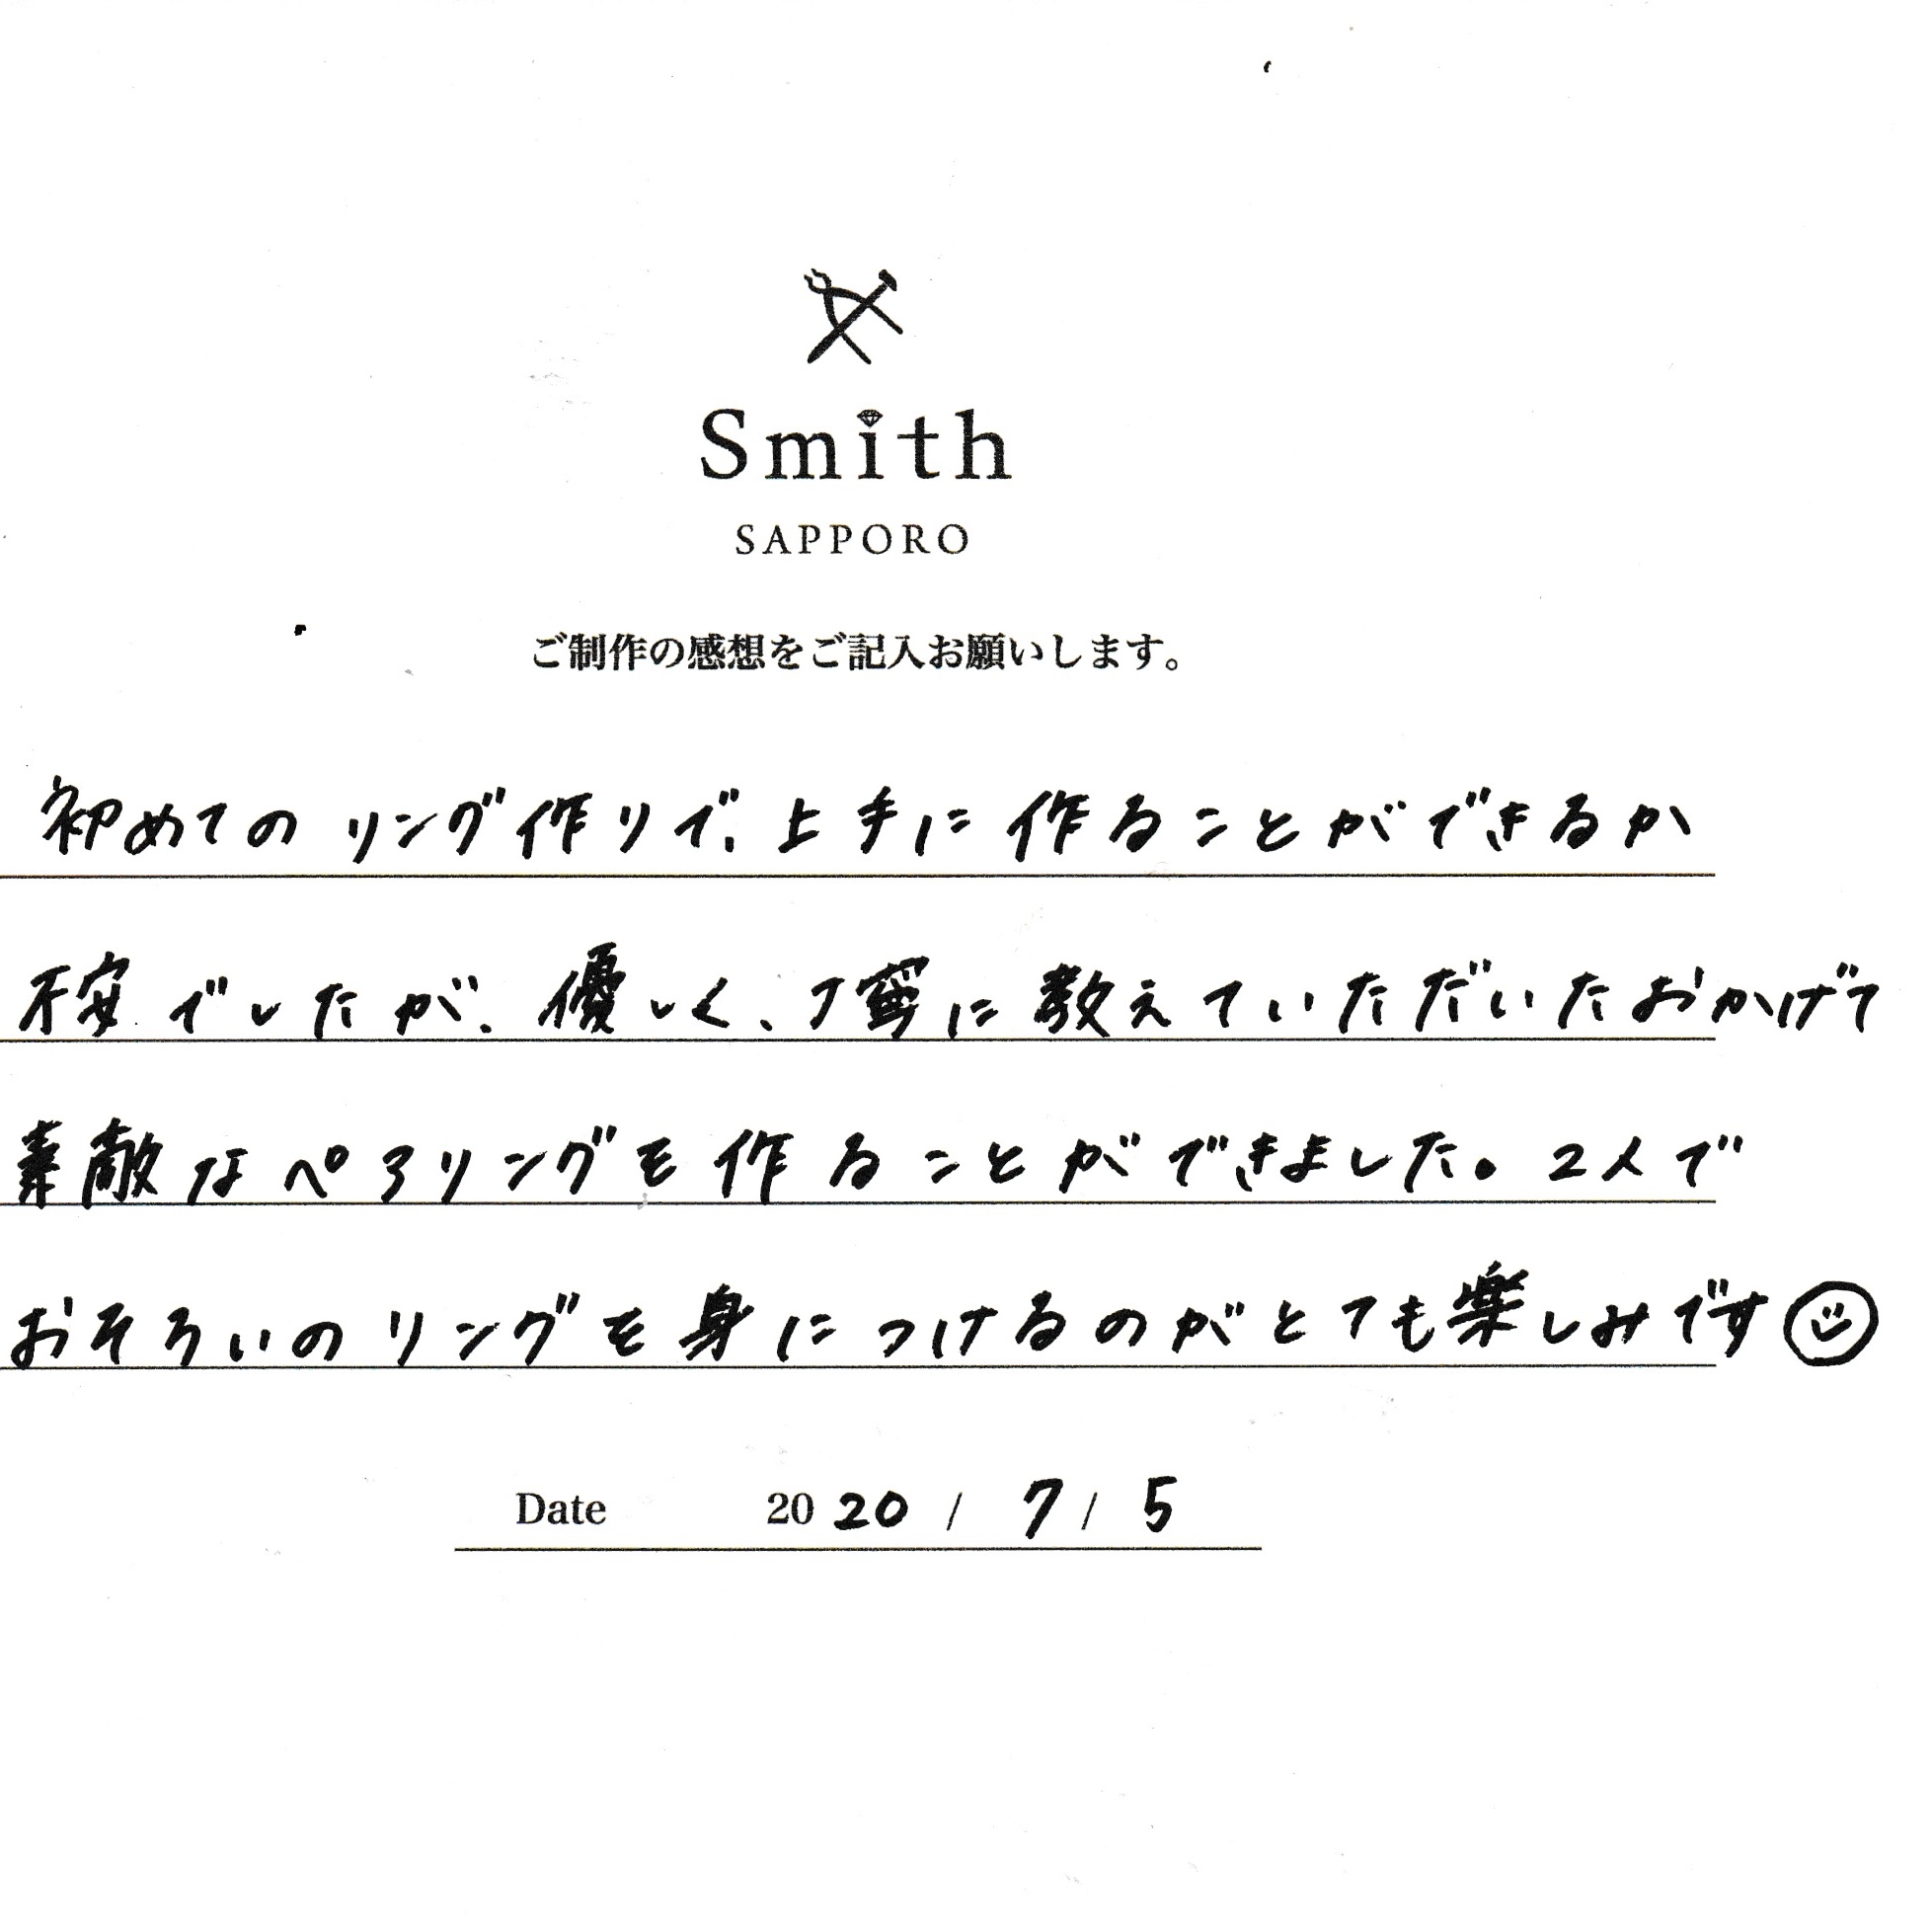 Smith
SAPPORO
ご制作の感想をご記入お願いします。
初めてのリング作りで、上手に作ることができるか
不安でしたが、優しく、丁寧に教えていただいたおかげで
素敵なペアリングを作ることができました。2人で
おそろいのリングを身につけるのがとても楽しみです
Date 2020 / 7 / 5